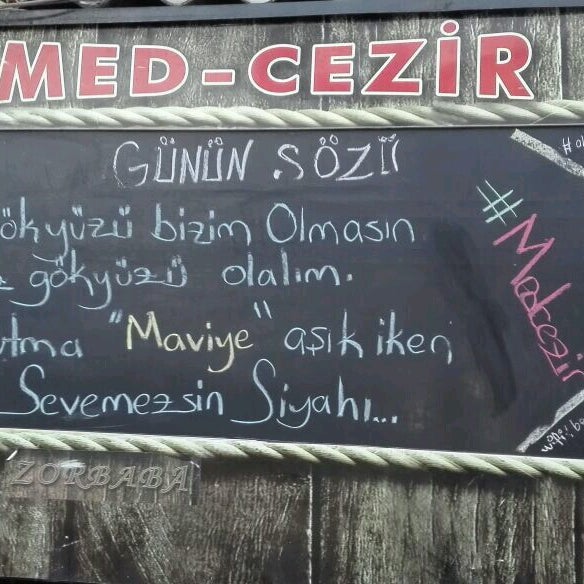 MED-CEZİR
GÜNÜN SÖZÜ
ökyüzü bizim Olmasın
z gökyüzü olalım.
utma "Maviye" aşık iken
Sevemezsin Siyahı...
#Medcezir
ZORBABA